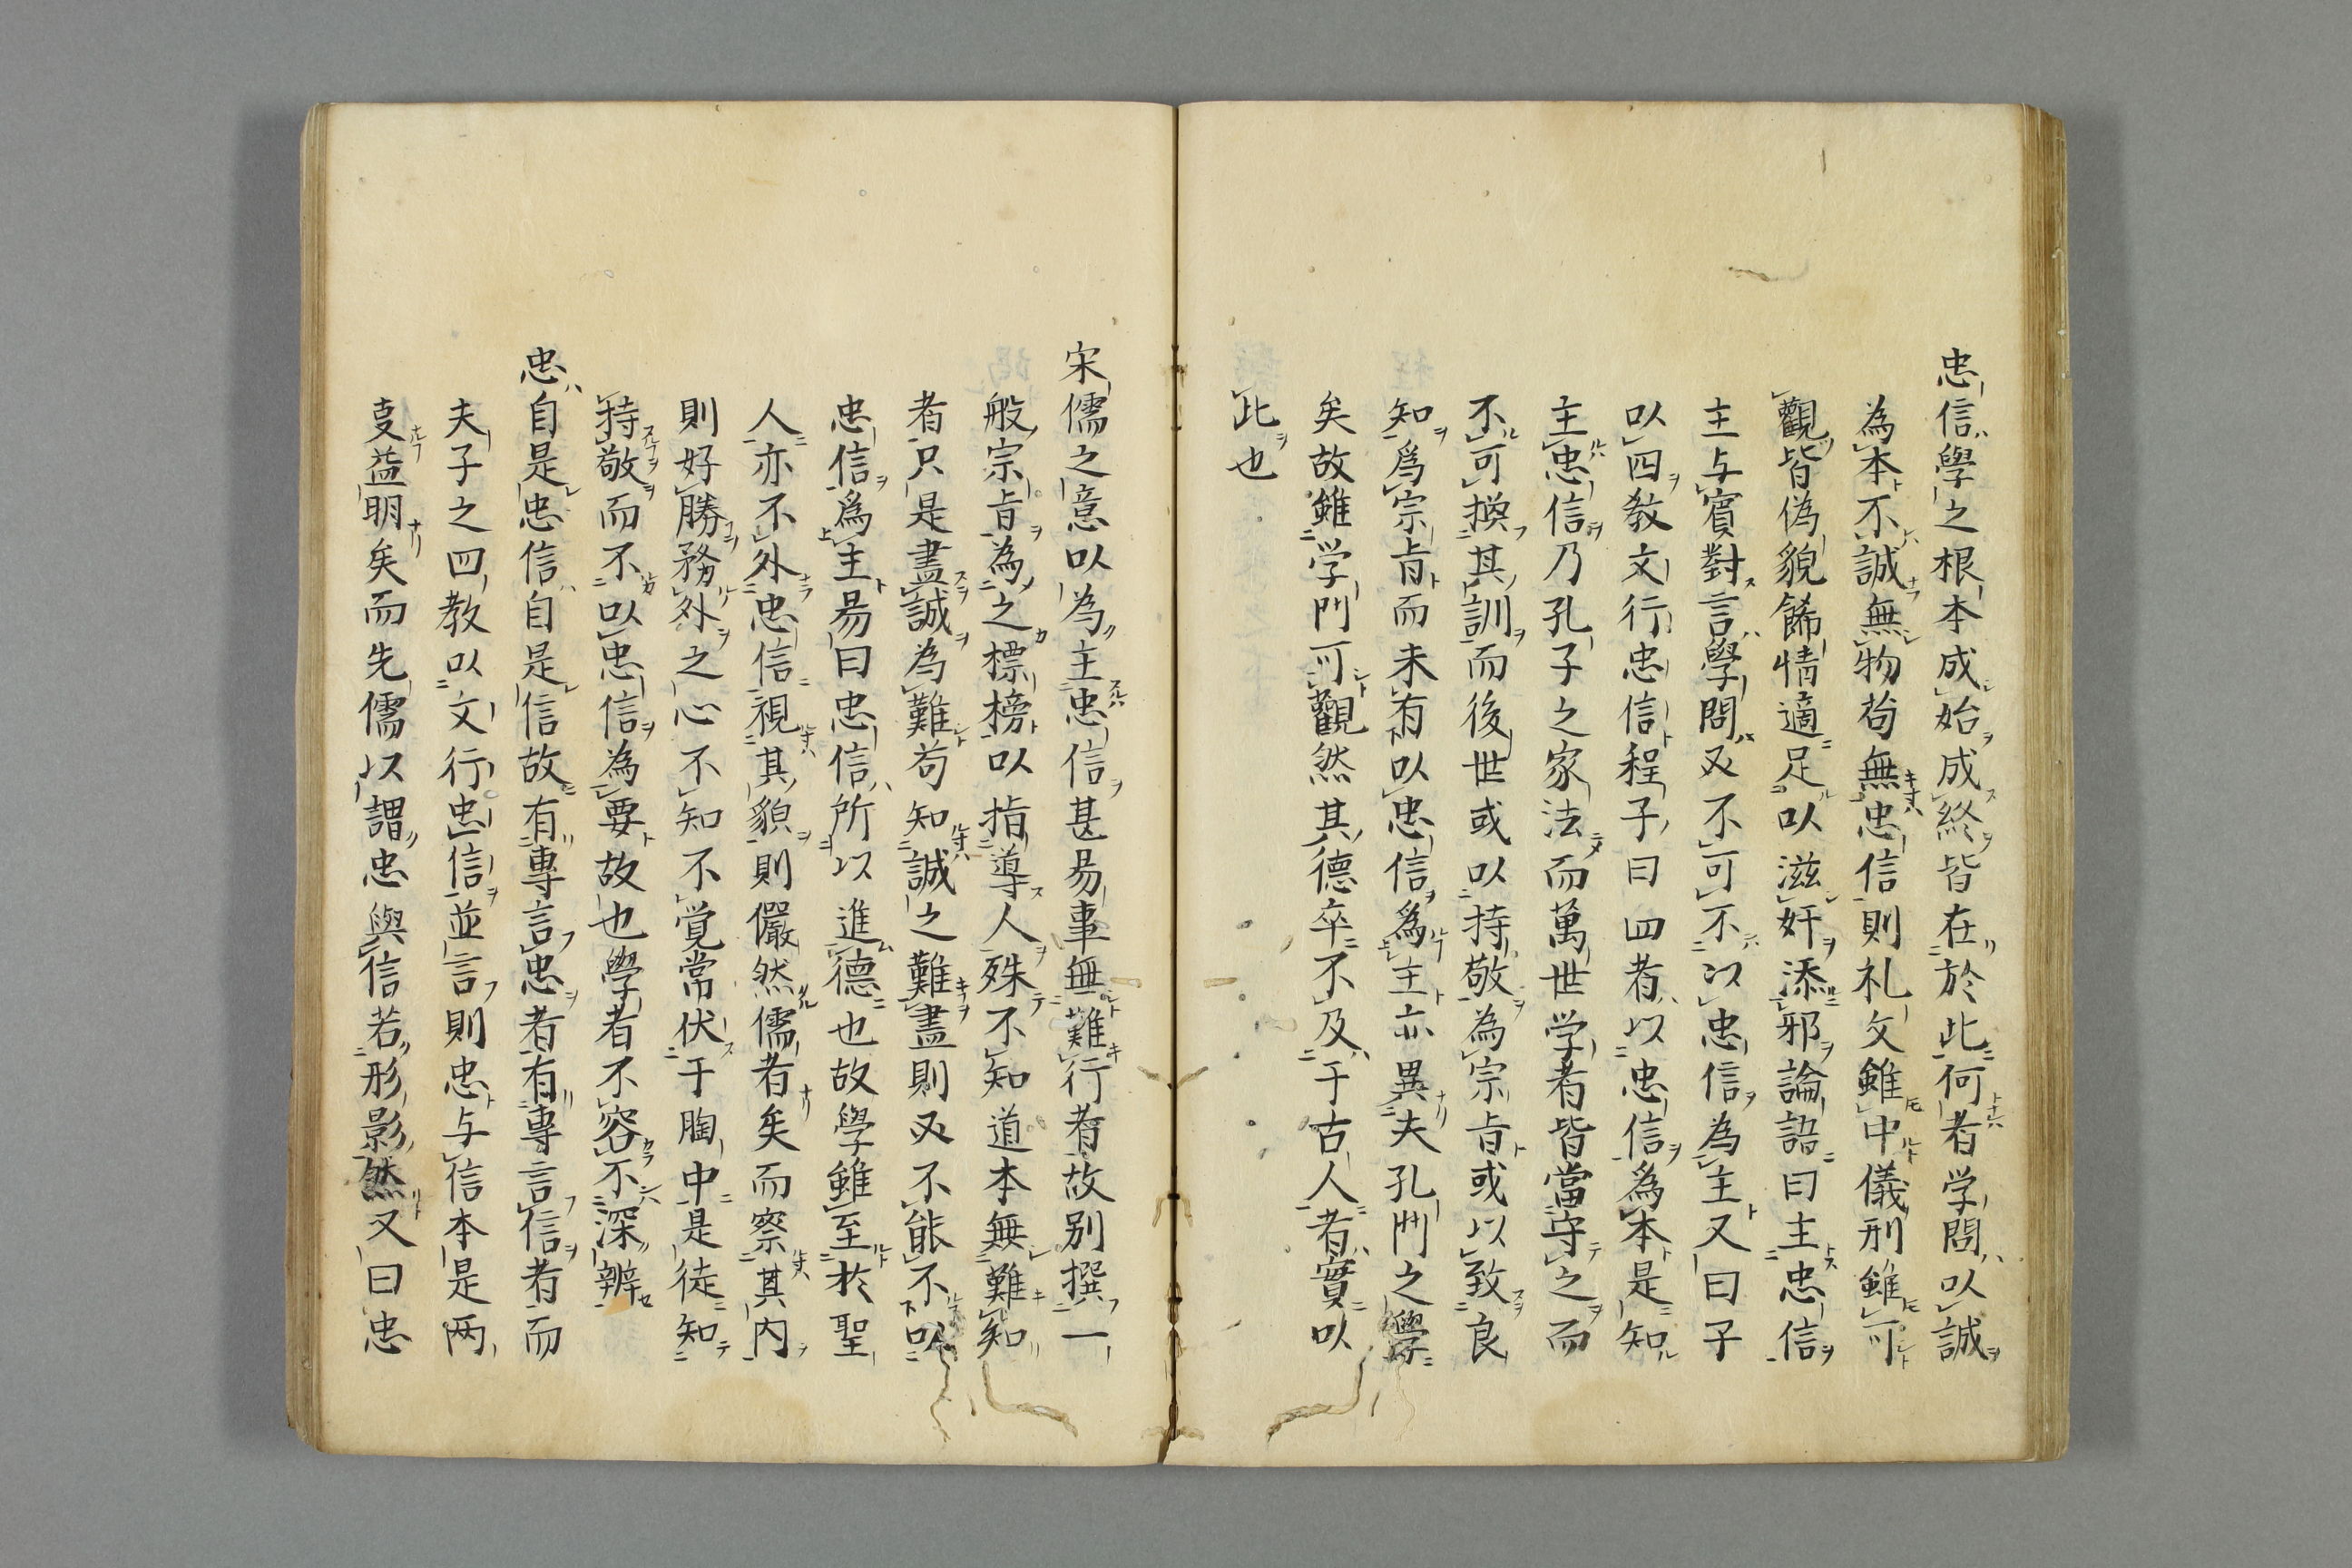 忠信學之根本成始成終皆在於此何者学問以誠
為本不誠無物苟無忠信則礼文雖中儀刑雖可
觀皆偽貌餙情適足以滋奸添邪論語曰主忠信
主与賓對言學問又不可不以忠信為主又曰子
以四教文行忠信程子曰四者以忠信為本是知
主忠信乃孔子之家法而萬世学者皆當守之而
不可換其訓而後世或以持敬為宗旨或以致良
知爲宗旨而未有以忠信爲主亦異夫孔門之學
矣故雖学門可觀然其德卒不及于古人者實以
此也
宋儒之意以為主忠信甚易事無難行者故別撰一
般宗旨為之標榜以指導人殊不知道本無難知
者只是盡誠為難苟知誠之難盡則又不能不以
忠信爲主易曰忠信所以進德也故學雖至於聖
人亦不外忠信視其貌則儼然儒者矣而察其内
則好勝務外之心不知不覚常伏于胸中是徒知
持敬而不以忠信為要故也學者不容不深辨
忠自是忠信自是信故有專言忠者有專言信者而
夫子之四教以文行忠信並言則忠与信本是两
叓益明矣而先儒以謂忠與信若形影然又曰忠